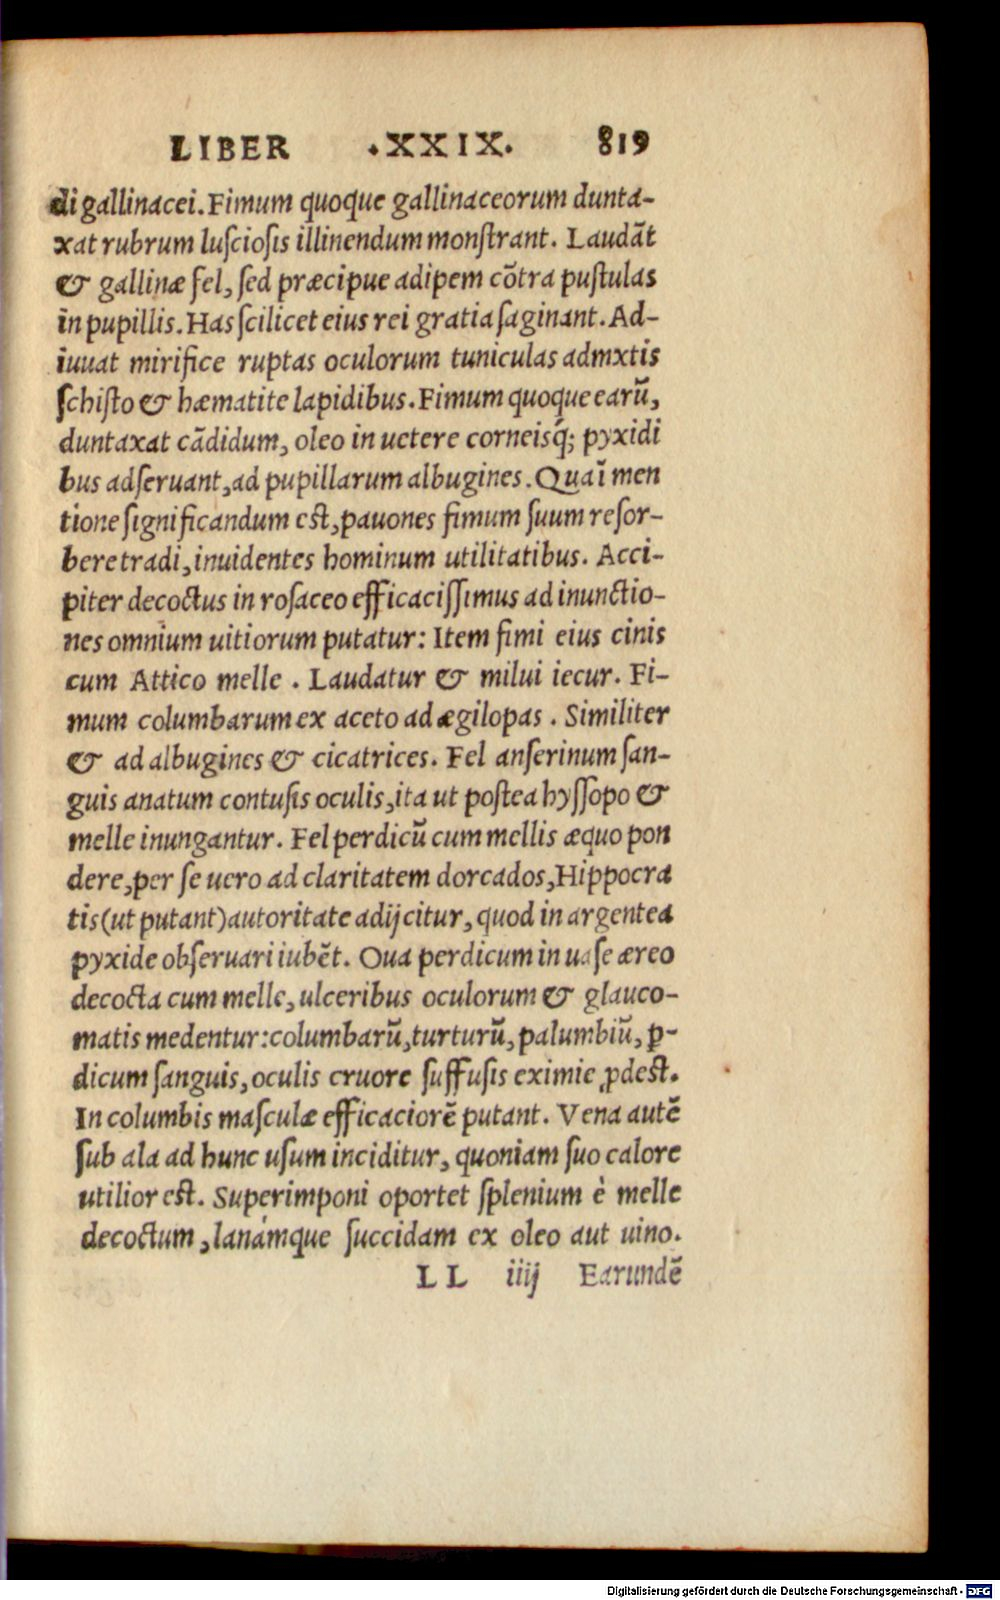 LIBER .XXIX. 819
di gallinacei. Fimum quoque gallinaceorum dunta-
xat rubrum luſcioſis illinendum monſtrant. Laudāt
& gallinæ fel, ſed præcipue adipem cōtra puſtulas
in pupillis. Has ſcilicet eius rei gratia ſaginant. Ad-
iuuat mirifice ruptas oculorum tuniculas admxtis
ſchiſto & hæmatite lapidibus. Fimum quoque earū,
duntaxat cādidum, oleo in uetere corneisq́; pyxidi
bus adſeruant, ad pupillarum albugines. Qua ī men
tione ſignificandum eſt, pauones fimum ſuum reſor-
bere tradi, inuidentes hominum utilitatibus. Acci-
piter decoctus in roſaceo efficaciſſimus ad inunctio-
nes omnium uitiorum putatur: Item fimi eius cinis
cum Attico melle. Laudatur & milui iecur. Fi-
mum columbarum ex aceto ad ægilopas. Similiter
& ad albugines & cicatrices. Fel anſerinum ſan-
guis anatum contuſis oculis, ita ut poſtea hyſſopo &
melle inungantur. Fel perdicū cum mellis æquo pon
dere, per ſe uero ad claritatem dorcados, Hippocra
tis (ut putant) autoritate adijcitur, quod in argentea
pyxide obſeruari iubēt. Oua perdicum in uaſe æreo
decocta cum melle, ulceribus oculorum & glauco-
matis medentur: columbarū, turturū, palumbiū, ꝑ-
dicum ſanguis, oculis cruore ſuffuſis eximie ꝓdeſt.
In columbis maſculæ efficaciorē putant. Vena autē
ſub ala ad hunc uſum inciditur, quoniam ſuo calore
utilior eſt. Superimponi oportet ſplenium è melle
decoctum, lanámque ſuccidam ex oleo aut uino.
LL iiij Earundē
Digitalisierung gefördert durch die Deutsche Forschungsgemeinschaft - DFG